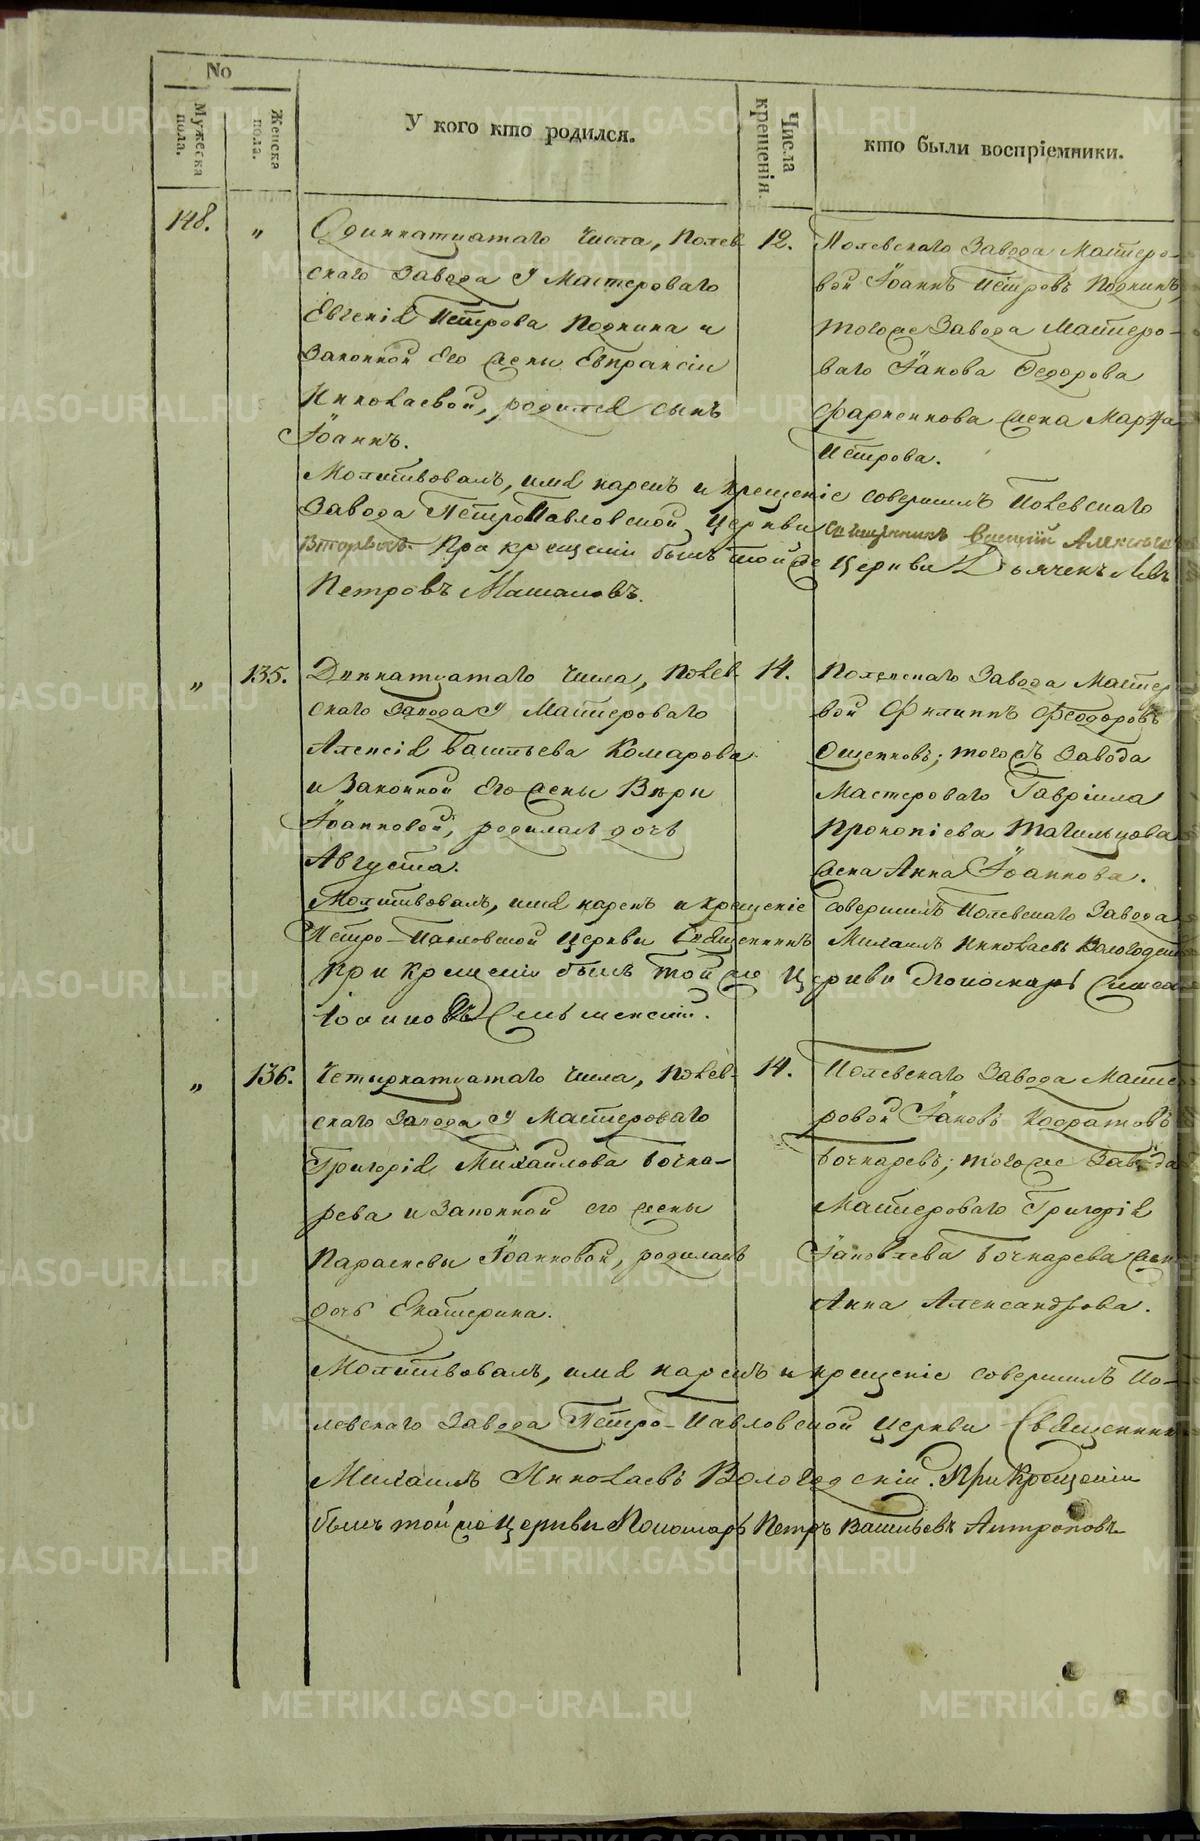 No
Мужеска пола.
Женска пола.
У кого кто родился.
Числа крещенія.
кто были воспріемники.
148. „ Одиннатцатаго числа, Полев-
скаго Завода у Мастероваго
Евгенія Петрова Поднина и
Законной его жены Евпраксіи
Николаевой, родился сынъ
Іоаннъ.
12.
Полевскаго Завода Мастеро-
вой Іоаннъ Петровъ
тогоже Завода Мастеро-
ваго Іакова Федорова
жена Марѳа
Петрова.
Молитвовалъ, имя нарекъ и крещеніе совершилъ Полевскаго
Завода Петро Павловской Церкви Священникъ
При крещеніи былъ той же Церкви Дьячекъ Левъ
Петровъ
„ 135. Двенатцатаго числа, Полев-
скаго Завода у Мастероваго
Алексія Васильева Комарова
и Законной его жены Вѣры
Іоанновой, родилась дочь
Августа.
14.
Полевскаго Завода Мастер
вой Филиппъ Феодоровъ
Ощепковъ; тогожъ Завода
Мастероваго Гавріила
Прокопіева Тагильцова
жена Анна Іоаннова.
Молитвовалъ, имя нарекъ и крещеніе совершилъ Полевскаго Завода
Петро-Павловской Церкви Священникъ Михаилъ Николаевъ
При крещеніи былъ той же Церкви Пономарь
Іоанновъ
„ 136. Четырнатцатаго числа, Полев-
скаго Завода у Мастероваго
Григорія Михайлова Бочка-
рева и Законной его жены
Параскевы Іоанновой, родилась
дочь Екатерина.
14.
Полевскаго Завода Масте
ровой Іаковъ Кодратовъ
Бочкаревъ; того же Завода
Мастероваго Григорія
Іаковлева Бочкарева жен
Анна Александрова.
Молитвовалъ, имя нарекъ и крещеніе совершилъ По-
левскаго Завода Петро-Павловской Церкви Священник
Михаилъ Николаевъ Вологодскій. При Крещеніи
былъ той же Церкви Пономарь Петръ Васильевъ Антроповъ
METRIKI.GASO-URAL.RU